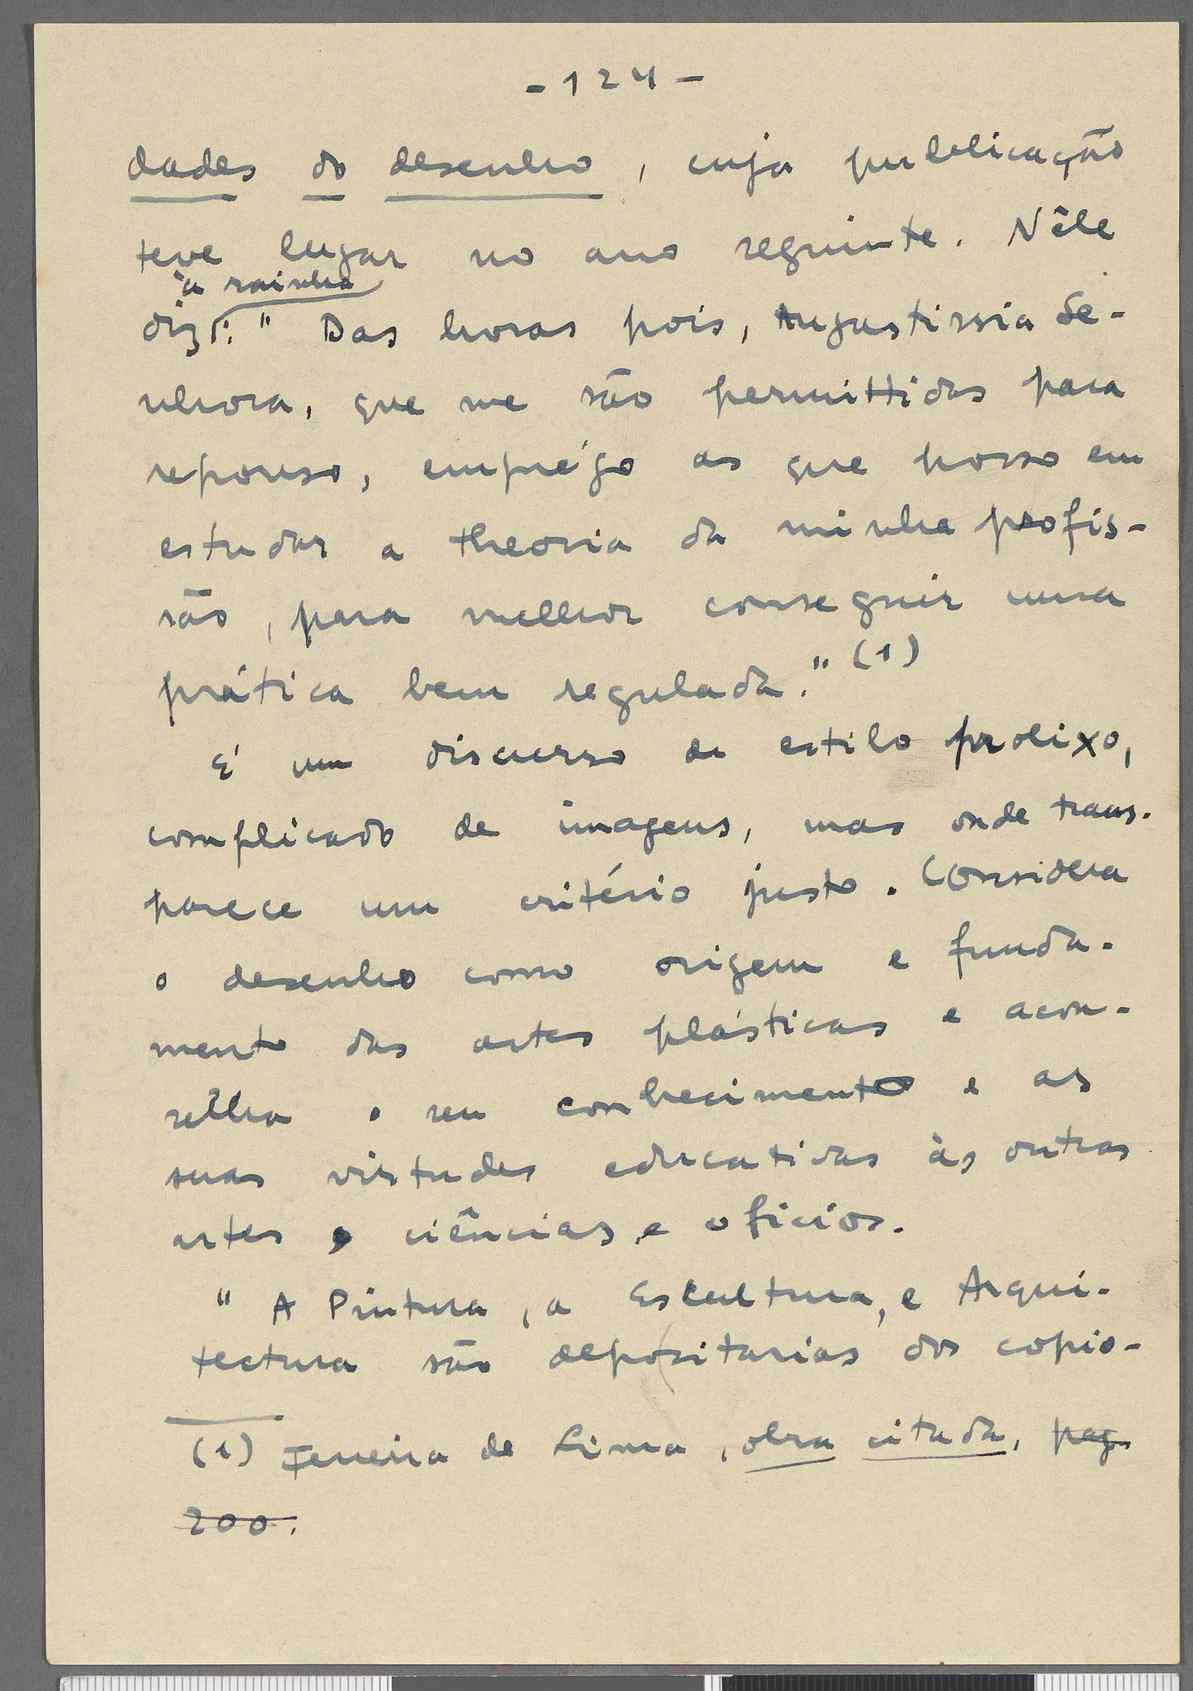 - 124 -
dades do desenho, cuja publicação
teve lugar no ano seguinte. Nêle
à rainha
diz: " Das horas pois, Augustissia Se-
nhora, que me são permittidas para
repouso, emprégo as que posso em
estudar a theoria da minha profis-
são, para melhor conseguir uma
prática bem regulada." (1)
É um discurso de estilo prolixo,
complicado de imagens, mas onde trans-
parece um critério justo. Considera
o desenho como origem e funda-
mento das artes plásticas e acon-
selha o seu conhecimento e as
suas virtudes educativas às outras
artes, ciências, e oficios.
" A Pintura, a Escultura, e Arqui-
tectura são depositarias dos copio-
(1) Ferreira de Lima, obra citada, pag.
200.